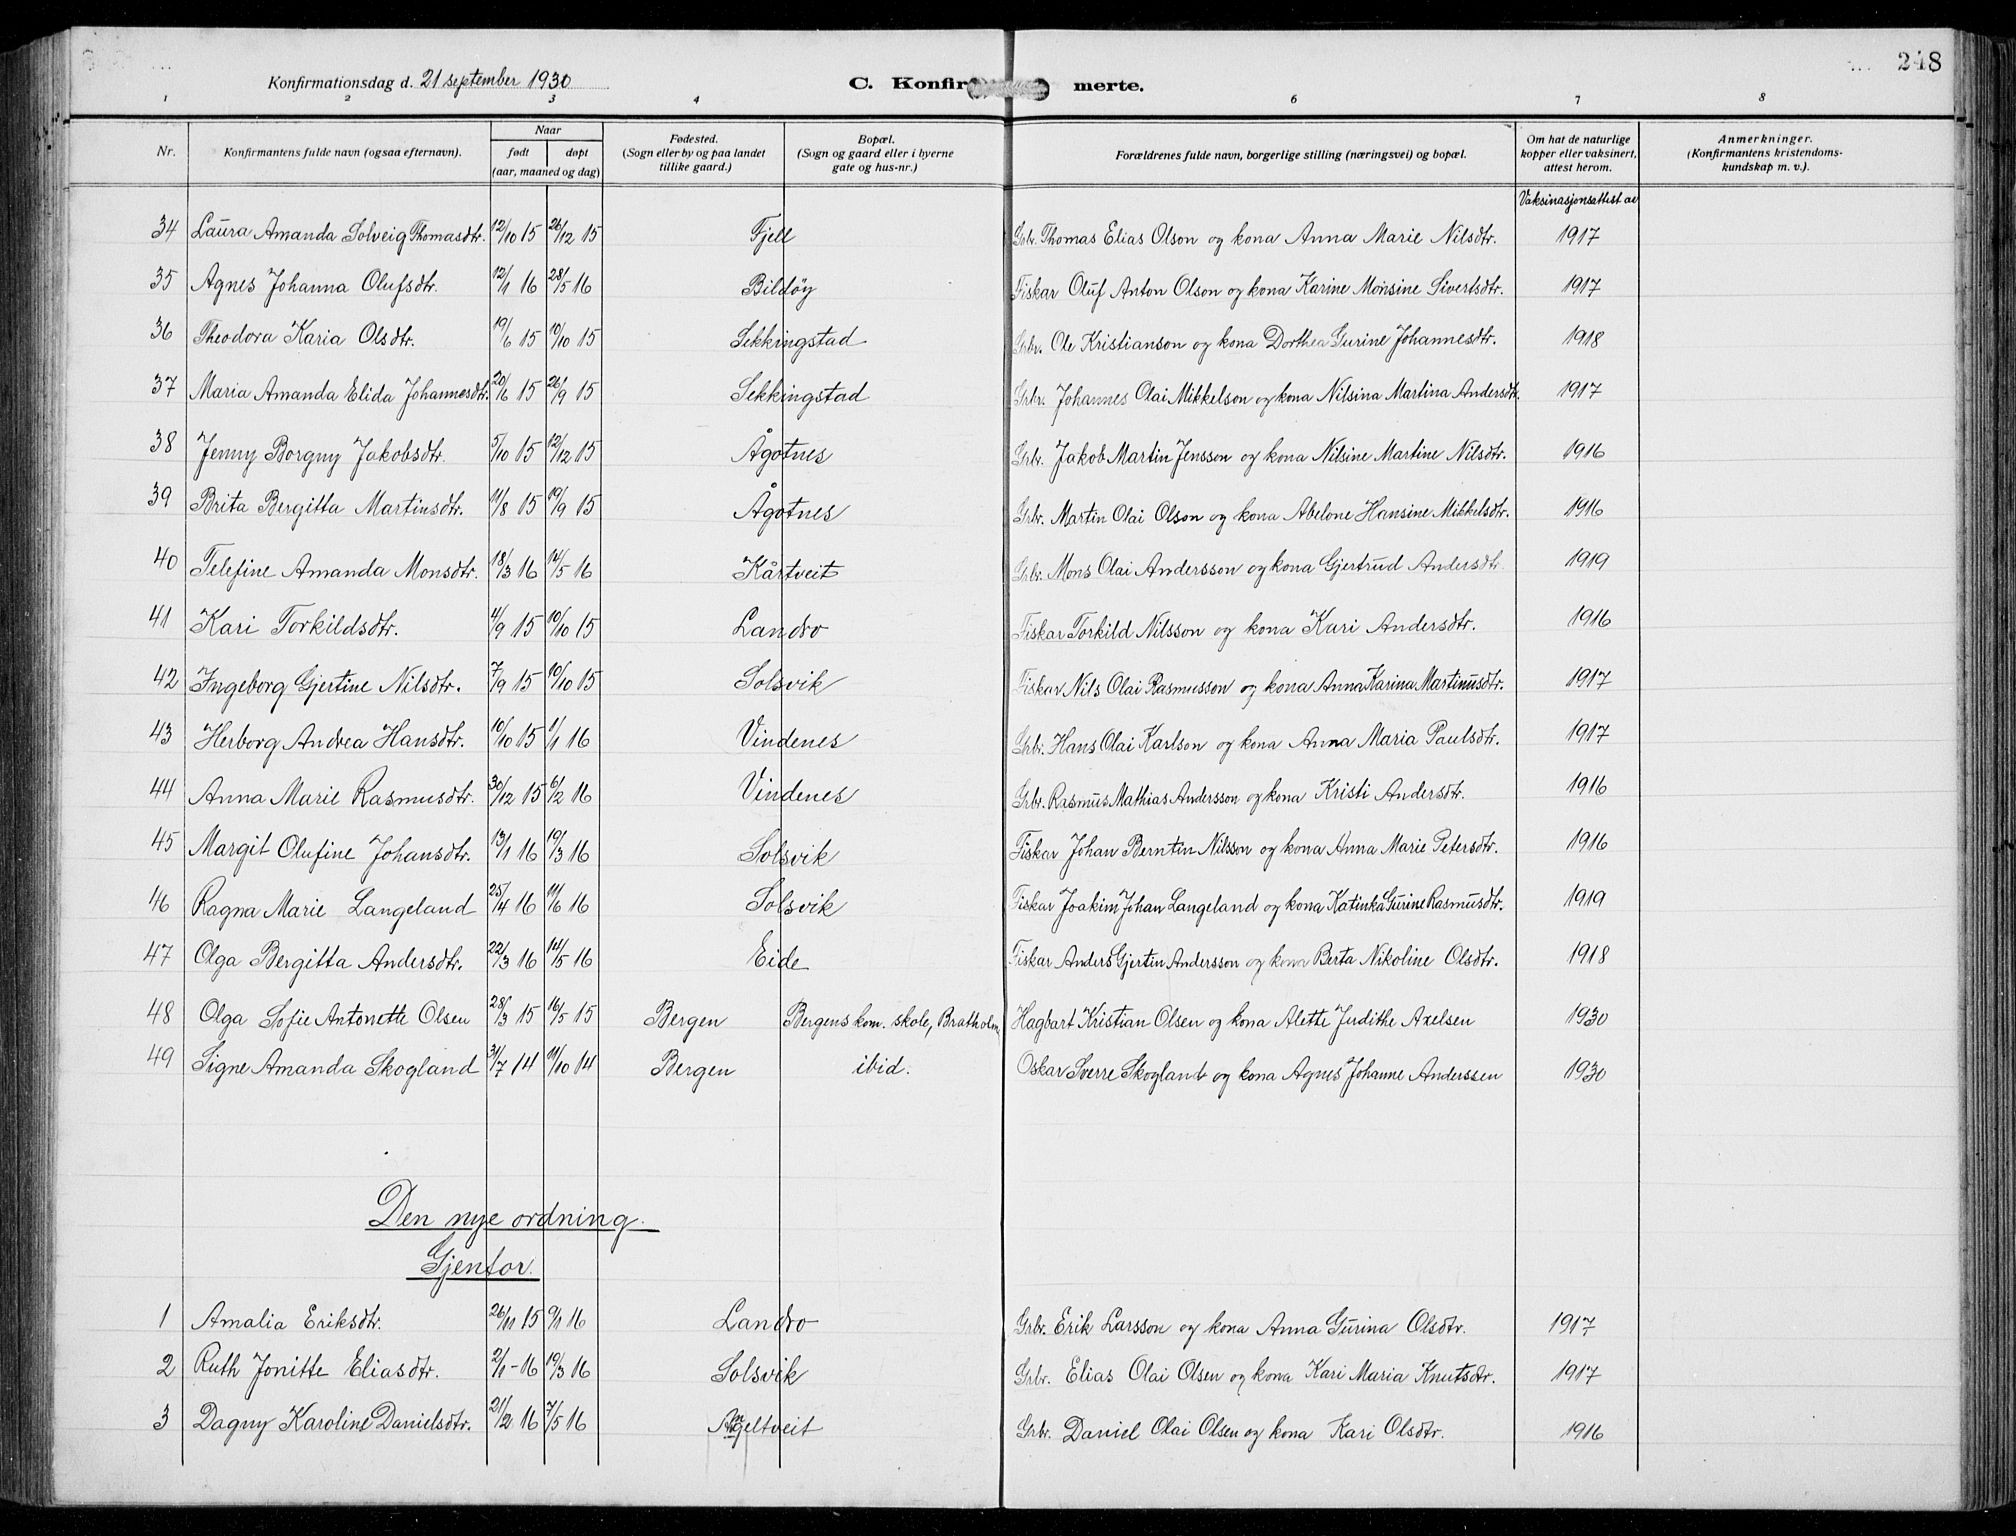 248
Konfirmationsdag d. 21 september 1930
C. Konfirmerte.
1 2 3 4 6 7 8
Nr. Konfirmantens fulde navn (ogsaa efternavn). Naar født døpt (aar, maaned og dag) Fødested. (Sogn eller by og paa landet tillike gaard.) Bopæl. (Sogn og gaard eller i byerne gate og hus-nr.) Forældrenes fulde navn, borgerlige stilling (næringsvei) og bopæl. Om hat de naturlige kopper eller vaksinert, attest herom. Anmerkninger. (Konfirmantens kristendomskundskap m. v.).
Vaksinasjonsattest av
34 Laura Amanda Solveig Thomasdtr. 12/10 15 26/12 15 Fjell Grbr. Thomas Elias Olson og kona Anna Marie Nilsdtr. 1917
35 Agnes Johanna Olufsdtr. 12/1 16 28/5 16 Bildøy Fiskar Oluf Anton Olson og kona Karine Monsine Sivertsdtr. 1917
36 Theodora Karia Olsdtr. 19/6 15 10/10 15 Sekkingstad Grbr. Ole Kristianson og kona Dorthea Gurine Johannesdtr. 1918
37 Maria Amanda Elida Johannesdtr. 20/6 15 26/9 15 Sekkingstad Grbr. Johannes Olai Mikkelson og kona Nilsina Martina Andersdtr. 1917
38 Jenny Borgny Jakobsdtr. 5/10 15 12/12 15 Ågotnes Grbr. Jakob Martin Jensson og kona Nilsine Martine Nilsdtr. 1916
39 Brita Bergitta Martinsdtr. 11/8 15 19/9 15 Ågotnes Grbr. Martin Olai Olson og kona Abelone Hansine Mikkelsdtr. 1916
40 Telefine Amanda Monsdtr. 18/3 16 14/5 16 Kårtveit Grbr. Mons Olai Andersson og kona Gjertrud Andersdtr. 1919
41 Kari Torkildsdtr. 4/9 15 10/10 15 Landro Fiskar Torkild Nilsson og kona Kari Andersdtr. 1916
42 Ingeborg Gjertine Nilsdtr. 7/9 15 10/10 15 Solsvik Fiskar Nils Olai Rasmusson og kona Anna Karina Martinusdtr. 1917
43 Herborg Andrea Hansdtr. 10/10 15 1/1 16 Vindenes Grbr. Hans Olai Karlson og kona Anna Maria Paulsdtr. 1917
44 Anna Marie Rasmusdtr. 30/12 15 6/2 16 Vindenes Grbr. Rasmus Mathias Andersson og kona Kristi Andersdtr. 1916
45 Margit Olufine Johansdtr. 13/1 16 19/3 16 Solsvik Fiskar Johan Berntin Nilsson og kona Anna Marie Petersdtr. 1916
46 Ragna Marie Langeland 25/4 16 11/6 16 Solsvik Fiskar Joakim Johan Langeland og kona Katinka Gurine Rasmusdtr. 1919
47 Olga Bergitta Andersdtr. 22/3 16 14/5 16 Eide Fiskar Anders Gjertin Andersson og kona Berta Nikoline Olsdtr. 1918
48 Olga Sofie Antonette Olsen 28/3 15 16/5 15 Bergen Bergens kom. skole, Bratholm. Hagbart Kristian Olsen og kona Alette Judithe Axelsen 1930
49 Signe Amanda Skogland 31/7 14 11/10 14 Bergen ibid. Oskar Sverre Skogland og kona Agnes Johanne Anderssen 1930
Den nye ordning.
Gjentor.
1 Amalia Eriksdtr. 26/11 15 9/1 16 Landro Grbr. Erik Larsson og kona Anna Gurina Olsdtr. 1917
2 Ruth Jonitte Eliasdtr. 2/1 - 16 19/3 16 Solsvik Grbr. Elias Olai Olsen og kona Kari Maria Knutsdtr. 1917
3 Dagny Karoline Danielsdtr. 21/2 16 7/5 16 Angeltveit Grbr. Daniel Olai Olsen og kona Kari Olsdtr. 1916